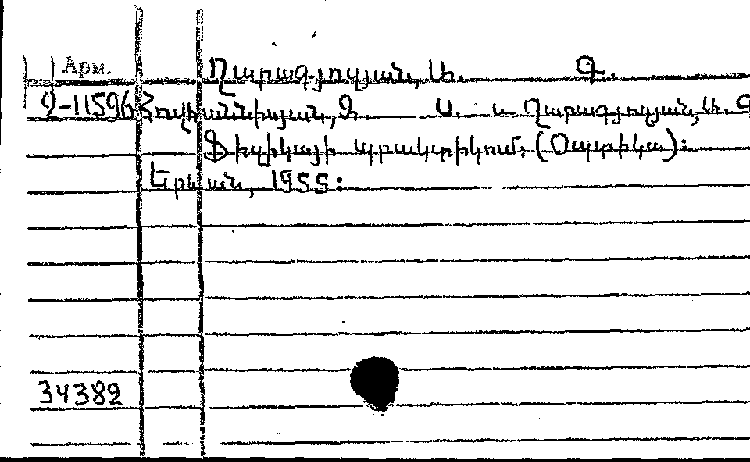 Арм.
Ղարագյուլյան, Ա. Գ.
2-11596 Հովհաննիսյան, Ջ. Ս. և Ղարագյուլյան, Ա. Գ
Ֆիզիկայի պրակտիկում: (Օպտիկա):
Երևան, 1955:
34382